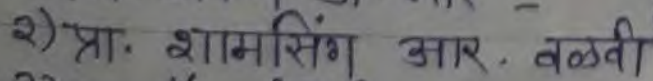 २) प्रा. शामसिंग आर. वळवी